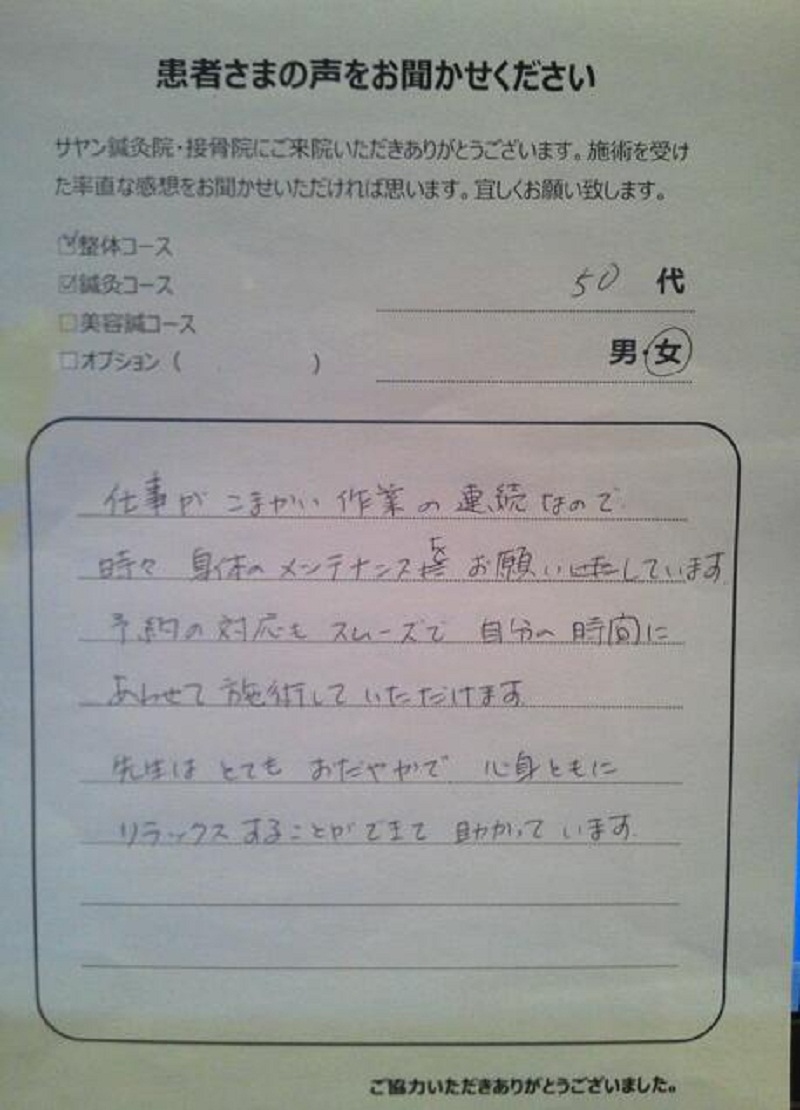 患者さまの声をお聞かせください
サヤン鍼灸院・接骨院にご来院いただきありがとうございます。施術を受け
た率直な感想をお聞かせいただければ思います。宜しくお願い致します。
☑整体コース
☑鍼灸コース
□美容鍼コース
□オプション（　　　　　　）
50 代
男・女
仕事が こまかい 作業の 連続なので
時々 身体の メンテナンスを お願い致しています
予約の対応も スムーズで 自分の 時間に
あわせて 施術して いただけます
先生は とても おだやかで 心身ともに
リラックスすることができて 助かって います
ご協力いただきありがとうございました。